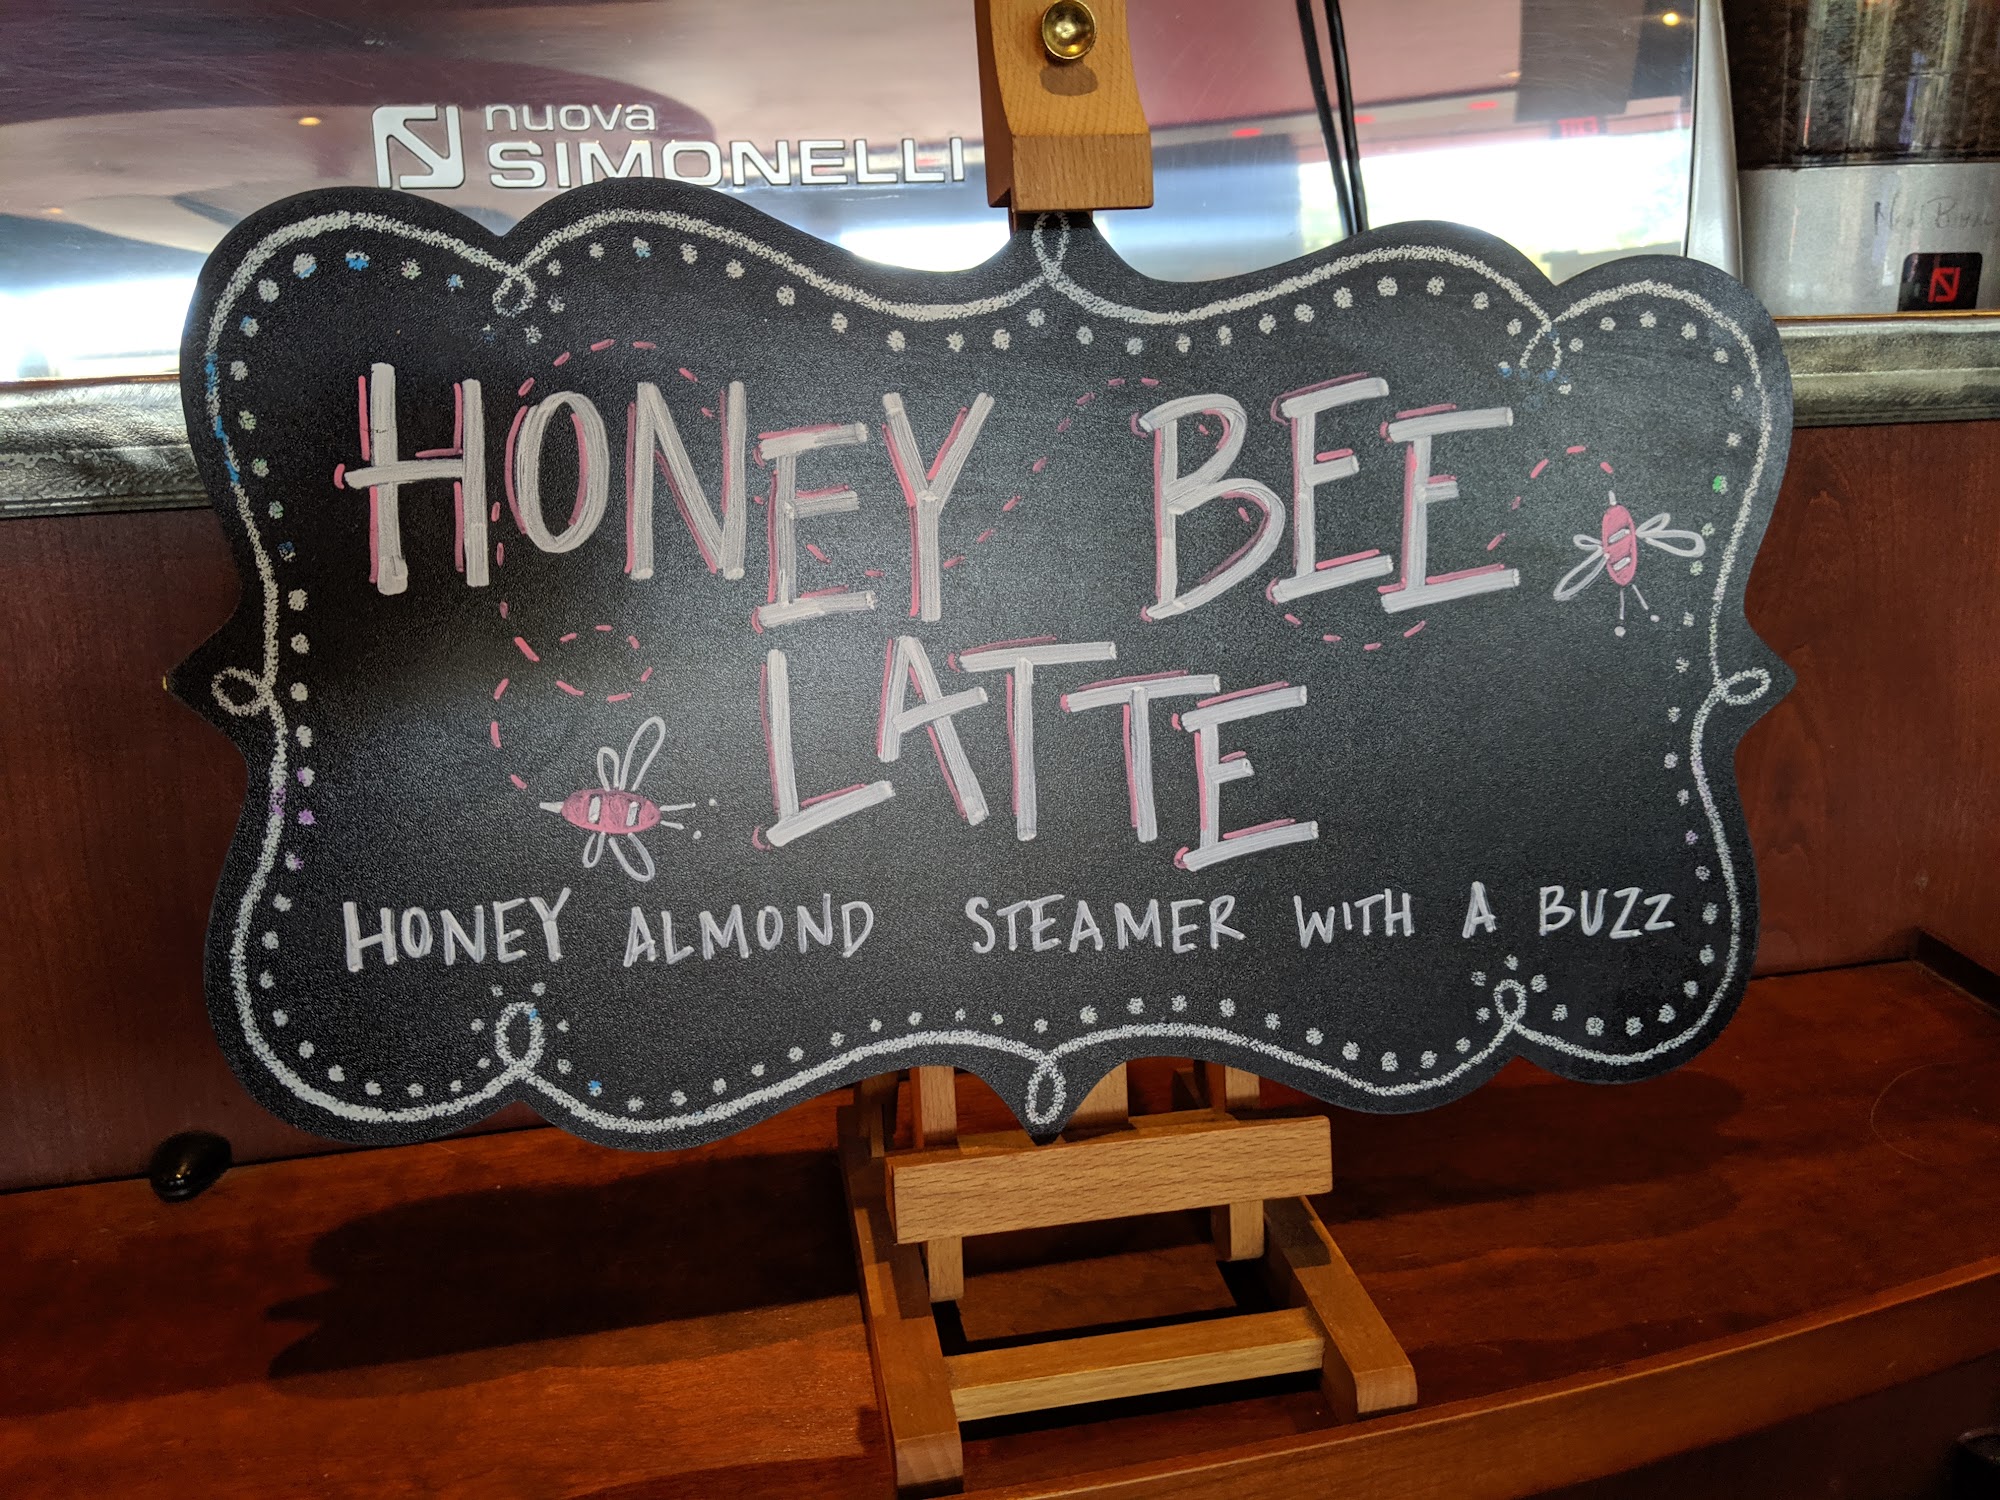 nuova
SIMONELLI
HONEY BEE
LATTE
HONEY ALMOND STEAMER WITH A BUZZ